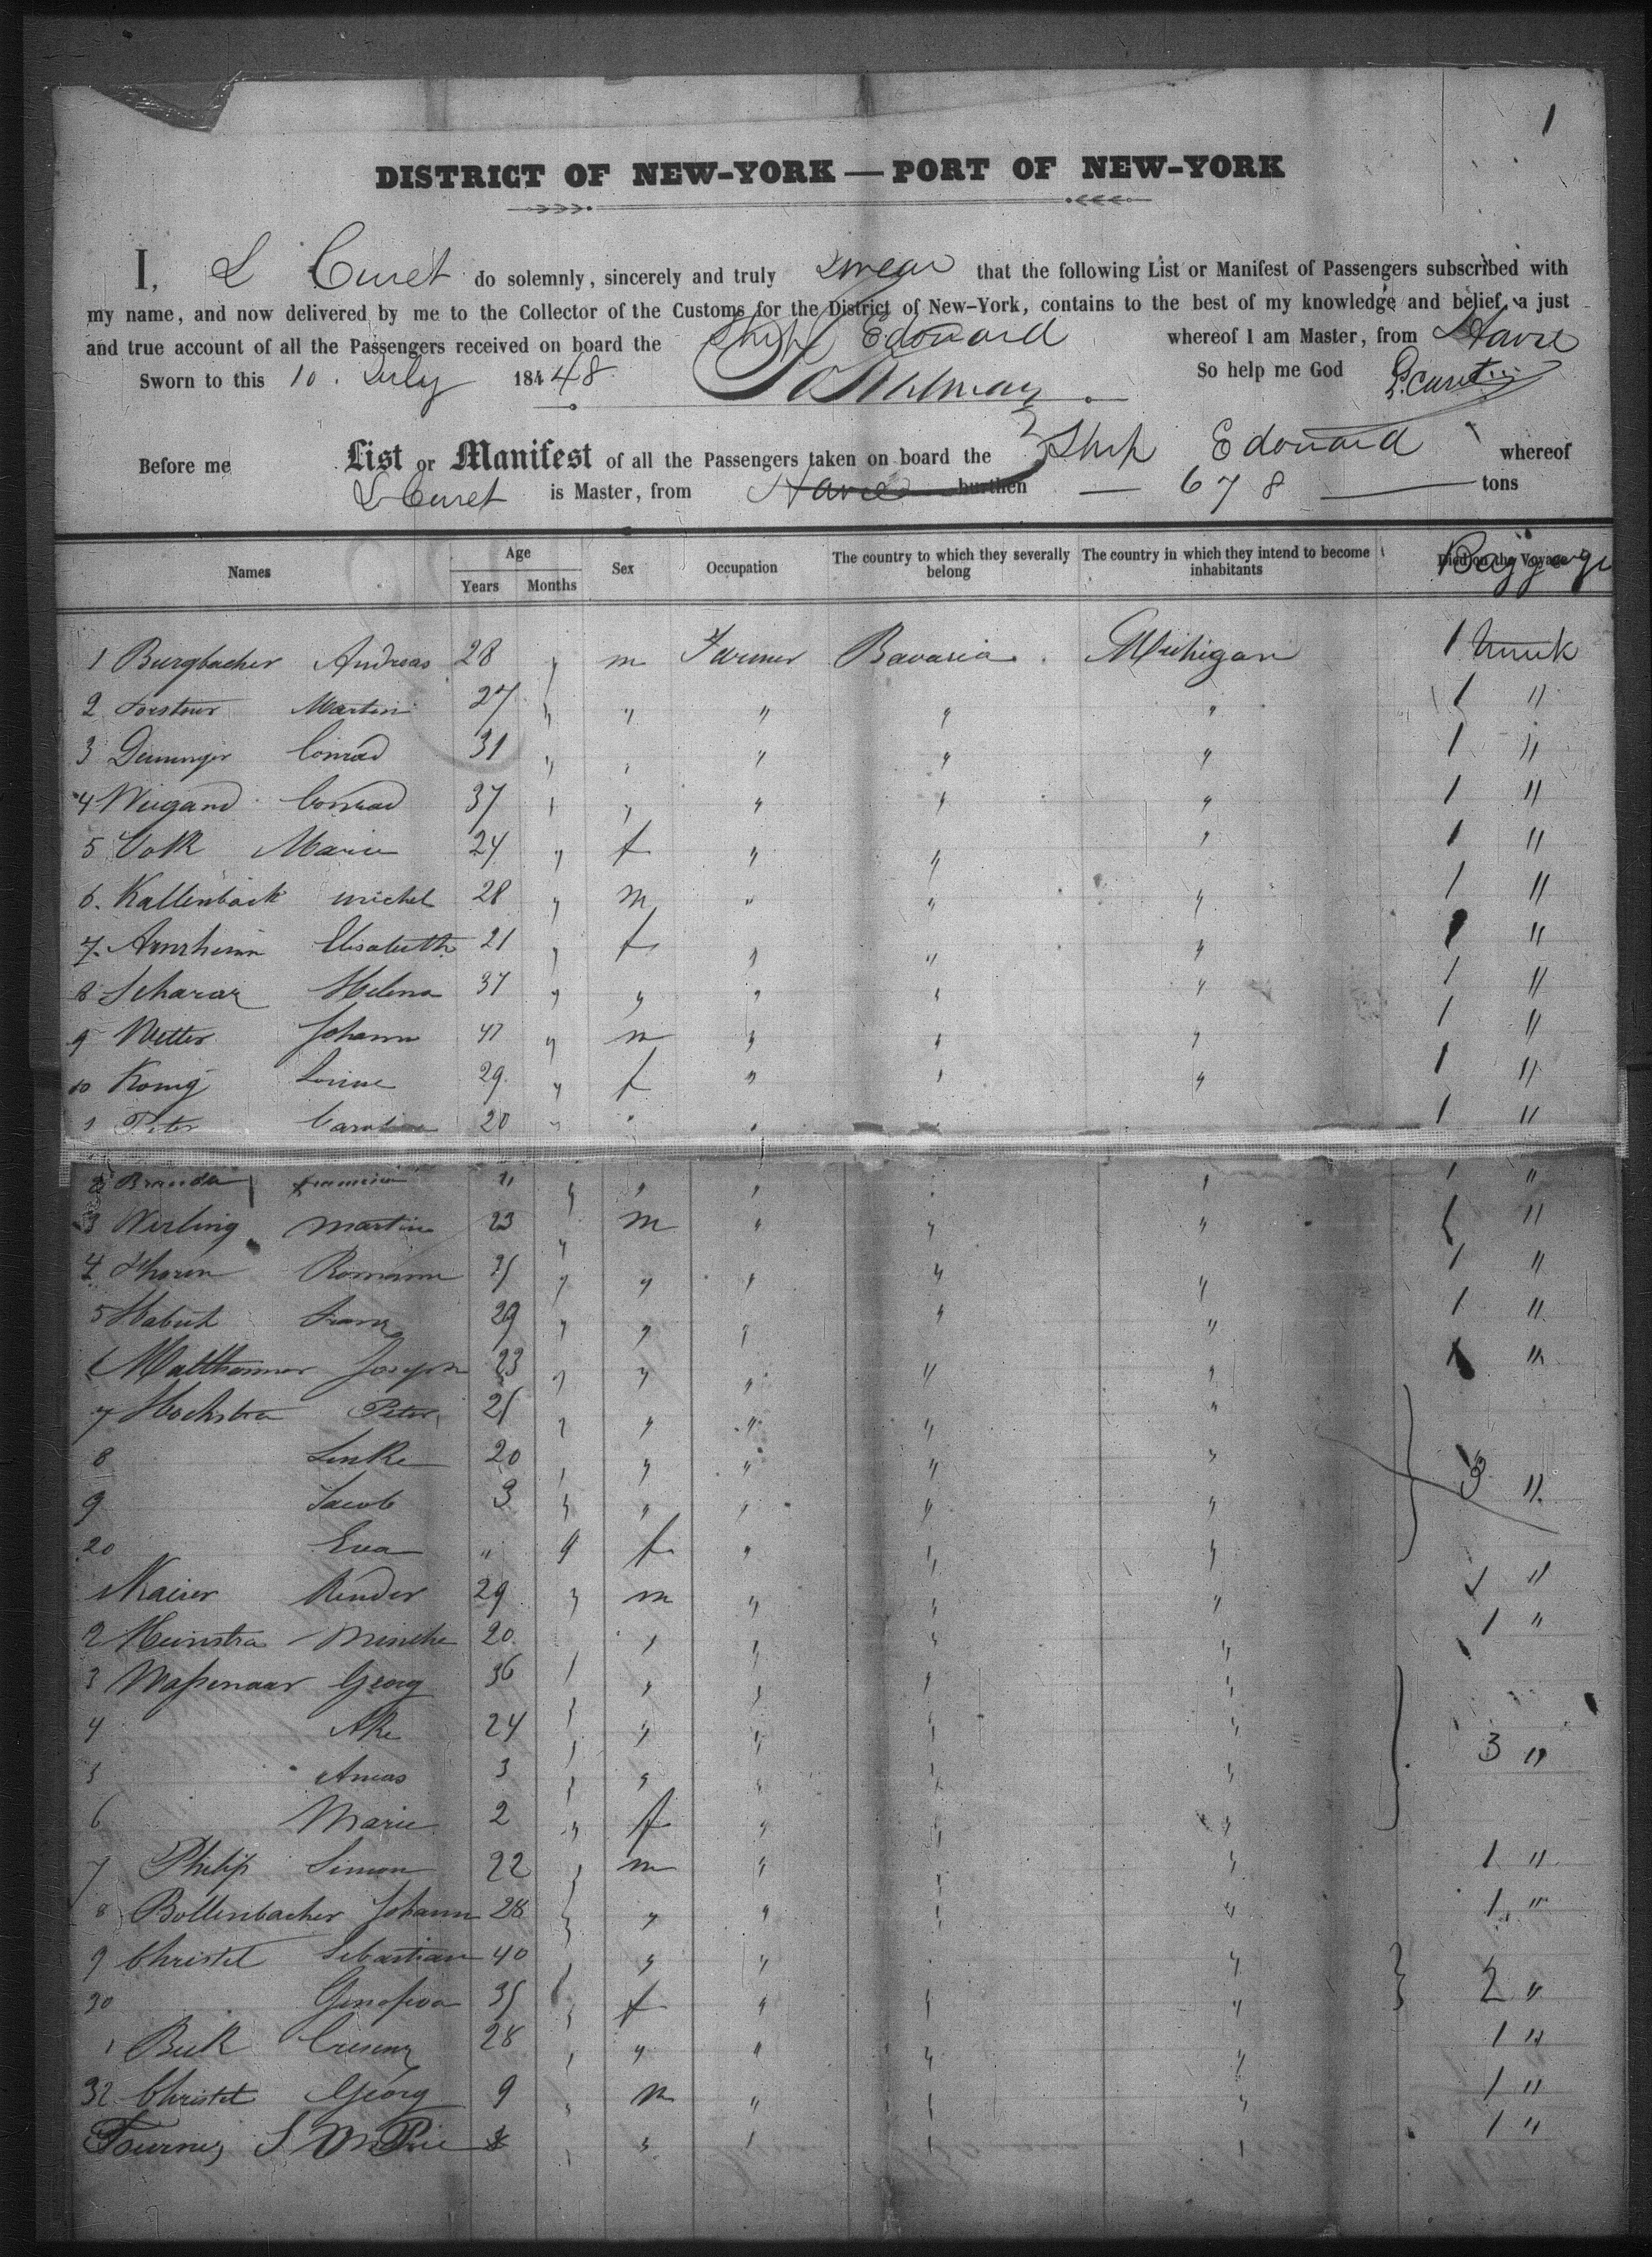 1
DISTRICT OF NEW-YORK — PORT OF NEW-YORK
I, L Curet do solemnly, sincerely and truly swear that the following List or Manifest of Passengers subscribed with
my name, and now delivered by me to the Collector of the Customs for the District of New-York, contains to the best of my knowledge and belief, a just
and true account of all the Passengers received on board the Ship Edouard whereof I am Master, from Havre
Sworn to this 10. July 18448 So help me God L. Curet
Before me List or Manifest of all the Passengers taken on board the Ship Edouard whereof
L Curet is Master, from Havre burthen — 678 — tons
Names Age Years Months Sex Occupation The country to which they severally belong The country in which they intend to become inhabitants Died on the Voyage Baggage
1 Burgbacher Andreas 28 " m Farmer Bavaria Michigan 1 trunk
2 Forstner Martin 27 " " " " " 1 "
3 Conrad 31 " " " " " 1 "
4 Wiegand Conrad 37 " " " " " 1 "
5 Volk Marie 24 " f " " " 1 "
6. Kallenback Michel 28 " m " " " 1 "
7. Arnsheim Elisabeth 21 " f " " " 1 "
8 Scharar Helena 37 " " " " " 1 "
9 Wetter Johann 47 " m " " " 1 "
10 Konig 29. " f " " " 1 "
1 Peter Caroline 20 " " " " 1 "
2 " " " " " 1 "
3 Werling Martin 23 " m " " " 1 "
4 Romann " " " " " 1 "
5 Habich Franz 29 " " " " " 1 "
6 Malthaner Joseph 23 " " " " " 1 "
7 Hochstra Peter 21 " " " " "
8 Linke 20 " " " " " 3 "
9 Jacob 3 " " " " "
20 Eva " 9 f " " "
1 Kaiser Render 29 " m " " " 1 "
2 Heinstra Minche 20 " " " " 1 "
3 Wassenaar Georg 36 " " " " "
4 Ake 24 " " " " " 3 "
5 3 " " " " "
6 Marie 2 " f " " "
7 Philip Simon 22 " m " " " 1 "
8 Bollenbacher Johann 28 " " " " " 1 "
9 Christel Sebastian 40 " " " "
30 Genofeva 35 " f " " " 2 "
1 Bek Cresenz 28 " " " " " 1 "
32 Christel Georg 9 " m " " " 1 "
" " " " " 1 "